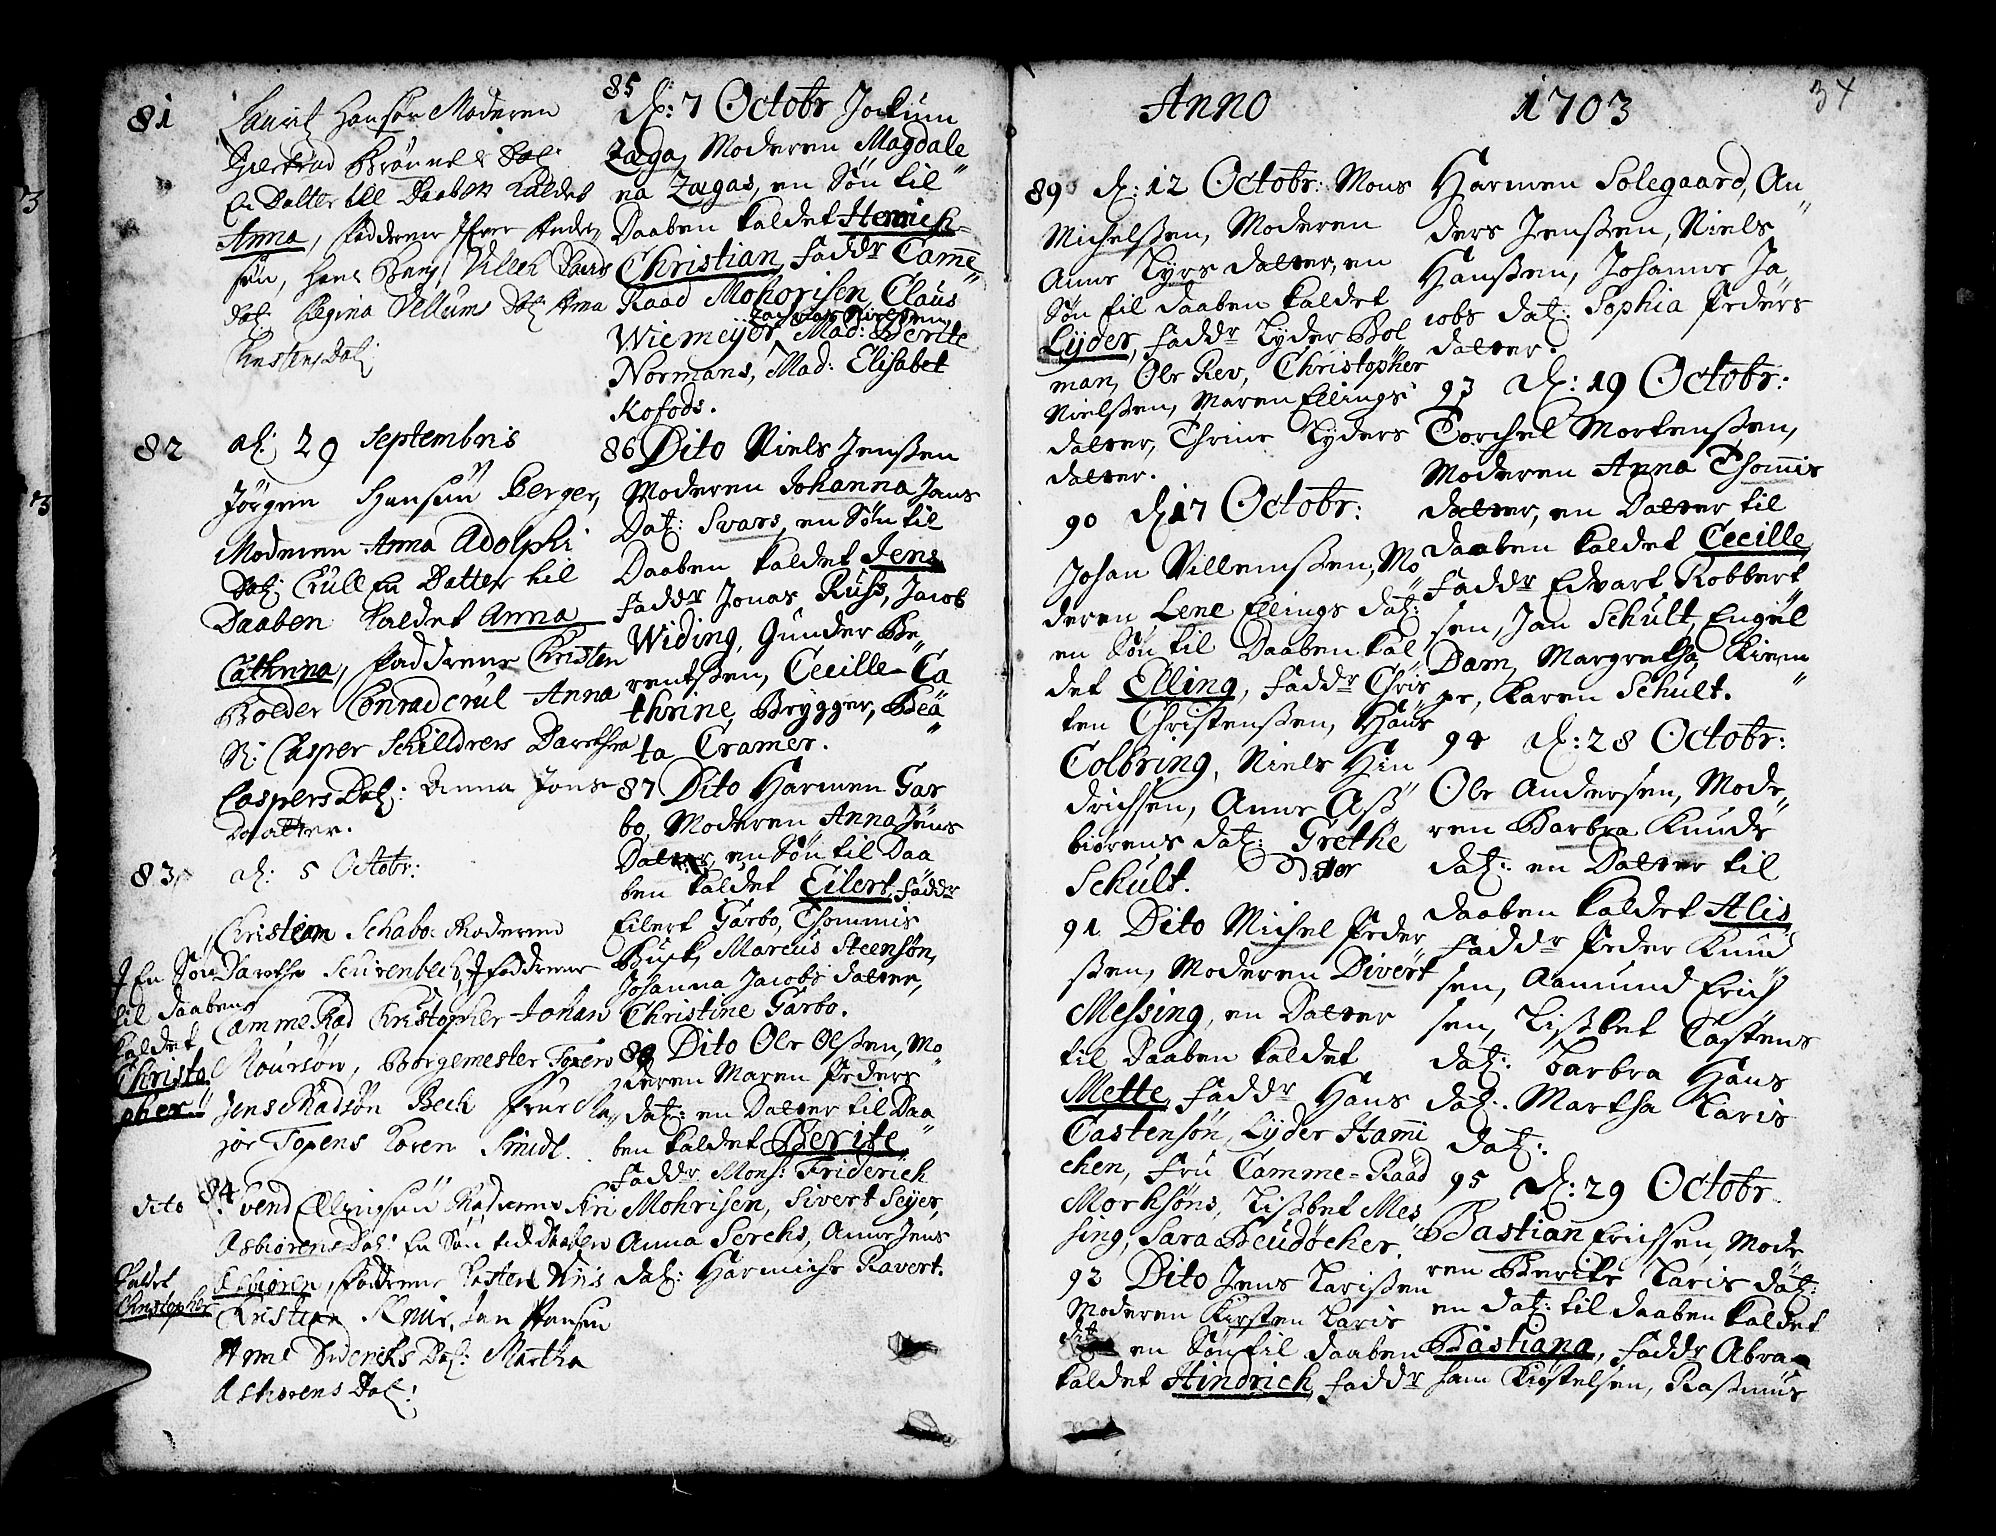 81 Laurit Hansøn Moderen
Giertrud Brønnels Dat:
En Datter till Daaben Kaldet
Anna, fadderne Ifver Ander„
søn, Hans Bang, Villeh Davids
Dat: Regina Vellums Dat: Anna
Christens Dat:
82 d: 29 Septembris
Jørgen Hansøn Berger,
Moderen Anna Adolphi
Dat: Crull En Datter til
Daaben kaldet Anna
Cathrina, fadderene Christen
Bolder Conrad Crul Anna
Sl: Casper Schilldrers Darethea
Caspers Dat: Anna Jons
Daatter.
83 d: 5 Octobr:
Christian Schabo Moderene
Darethe Suirenbech, fadderene
En Søn
til Daaben
kaldet
Christo„
pher.
Camme Rad Christopher Johan
Mourson, Borgemester Topen
Jens Madsøn Bech Frue Ma„
jor Topens Karen Smidt.
84
dito Svend Ellingsøn Moderene Siri
Asbiørens Dat: En Søn till Daaben
kaldet
Christopher
Esbiøren, fadderne Kasten Friis
Christian Knis, Jan Hansøn
Anne Didericks Dat: Martha
Asbiorens Dat:
85
d: 7 Octobr Jockum
Zæga, Moderen Magdale„
na Zægas, en Søn til
Daaben kaldet Henrich=
Christian, faddr Came„
Raad Mohorisen, Claus
Zacharias Nielsen
Wiemeyer, Mad: Berite
Normans, Mad: Elisabet
Kofods.
86 Dito Niels Jenssen
Moderen Johanna Jans
Dat: Svars, en Søn til
Daaben kaldet Jens
faddr Jonas Russ, Jacob
Widing, Gunder Be„
rentssen, Cecille-Ca
thrine, Brygger, Bea„
ta Cramer.
87 Dito Harmen Gar
bo, Moderen Anna Jens
Datter, en Søn til Daa
ben kaldet Eilert, faddr
Eilert Garbo, Thommis
Buck, Marcus Steensøn,
Johanna Jacobs datter,
Christine Garbo.
88 Dito Ole Olssen, Mo„
deren Maren Peders
dat: en Datter til Daa
ben kaldet Berite,
faddr Mons: Friderich
Mohrisen, Sivert Seyer,
Anna Serchs, Anne Jens
dat: Harmiche Ravert.
Anno 1703 34
89 d: 12 Octobr: Mons
Michelssen, Moderen
Anne Lyrs datter, en
Søn til daaben kaldet
Lyder, faddr Lyder Bol
man, Ole Rev, Christopher
Nielssen, Maren Ellings
datter, Thrine Lyders
datter.
90 d: 17 Octobr:
Johan Villemssen, Mo„
deren Lene Ellings dat:
en Søn til Daaben kal„
det Elling, faddr Chris
ten Christenssen, Hans
Colbring, Niels Hin
drichsen, Anne Ass„
biørens dat: Grethe
Schult. datter
91. Dito Michel Peder
ssen, Moderen Divert
Messing, en Datter
til Daaben kaldet
Mette, faddr Hans
Castensøn, Lyder Hami
chen, Fru Camme=Raad
Morhsøns, Lissbet Mes„
sing, Sara Beudøcher.
92 Dito Jens Larissen
Moderen Kirsten Laris
dat: en Søn til daaben
kaldet Hindrich, faddr
Harmen Solegaard, An„
ders Jenssen, Niels
Hanssen, Johanne Ja„
cobs dat: Sophia Peders
datter.
93 d: 19 Octobr:
Torchel Mortenssen,
Moderen Anna Thomis
datter, en Datter til
daaben kaldet Cecille
faddr Edvart Robbert„
sen, Jan Schult, Engel
Dam, Margretha Kiem„
pe, Karen Schult.
94 d: 28 Octobr:
Ole Andersen, Mode„
ren Barbra Knuds
dat: en Datter til
daaben kaldet Alis,
faddr Peder Knud
sen, Aamund Erich
sen, Lissbet Castens
dat: Barbra Hans
dat: Martha Laris
dat:
95 d: 29 Octobr.
Bastian Erichsen, Mode„
ren Berite Laris dat:
en dat: til daaben kaldet
Bastiana, faddr Abra
ham Kiøstelsen, Rassmus